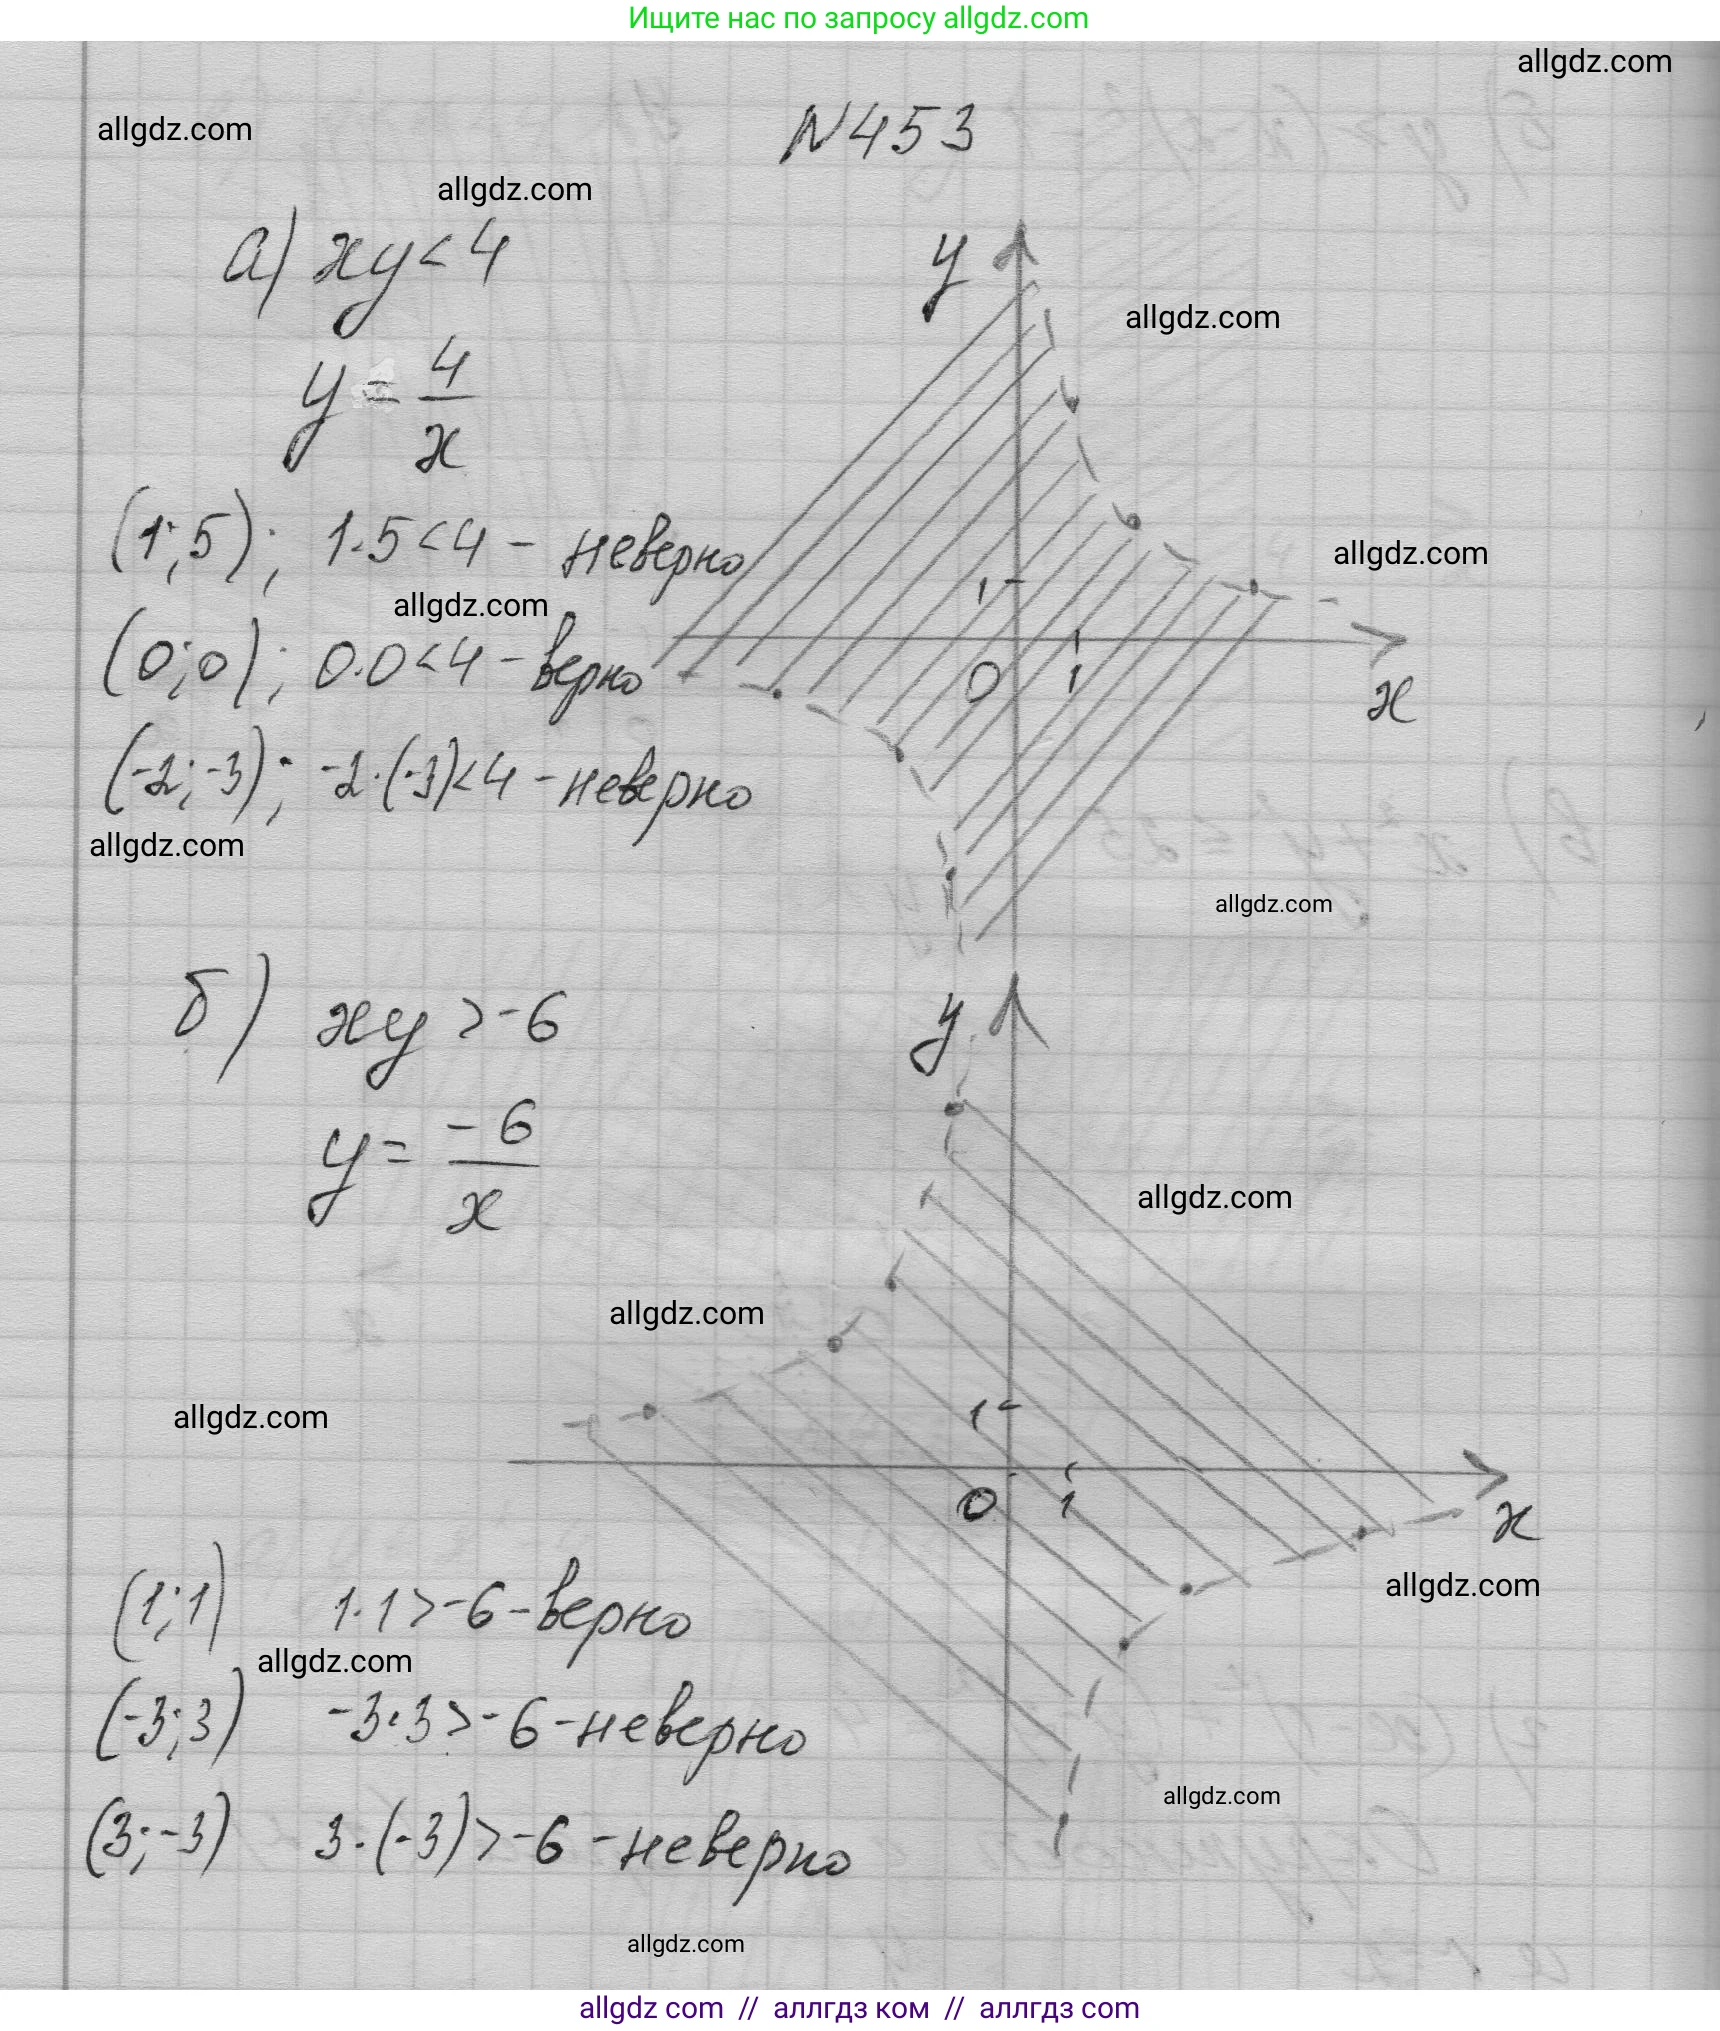 Ищите нас по запросу allgdz.com
allgdz.com
allgdz.com
N453
allgdz.com
а) xy < 4
y
allgdz.com
y = 4/x
(1;5); 1·5<4 – неверно
allgdz.com
1
allgdz.com
(0;0); 0·0<4 – верно
0 1
x
(-2;-3); -2·(-3)<4 – неверно
allgdz.com
allgdz.com
б) xy > -6
y
y = -6/x
allgdz.com
allgdz.com
allgdz.com
1
0 1
x
allgdz.com
(1;1) 1·1>-6 – верно
allgdz.com
(-3;3) -3·3>-6 – неверно
allgdz.com
(3;-3) 3·(-3)>-6 – неверно
allgdz.com
allgdz com // аллгдз ком // аллгдз com